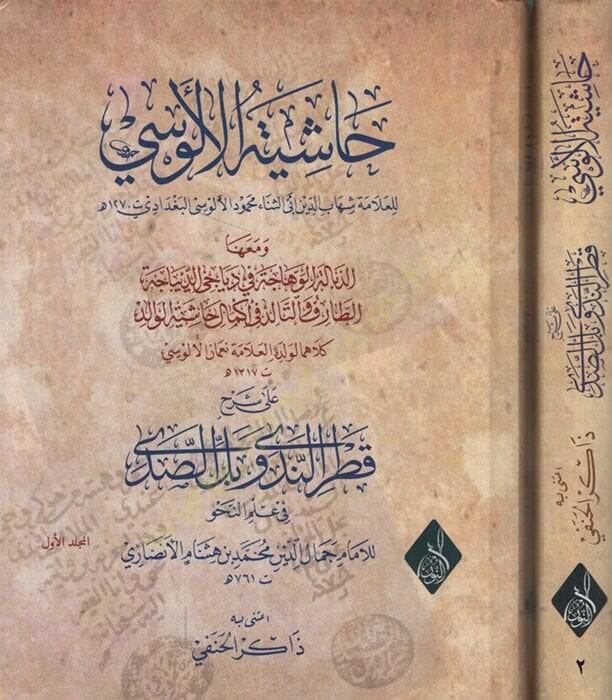 حاشية الألوسي
للعلامة شهاب الدين أبي الثناء محمود الألوسي البغدادي ت ١٢٧٠ هـ
ومعها
الذبالة الوهاجة في دياجي الديباجة
الطارف والتالد في إكمال حاشية الوالد
كلاهما لولده العلامة نعمان الألوسي
ت ١٣١٧ هـ
على شرح
قطر الندى وبل الصدى
في علم النحو
المجلد الأول
للإمام جمال الدين محمد بن هشام الأنصاري
ت ٧٦١ هـ
اعتنى به
ذاكر الحنفي
حاشية الألوسي
على شرح
قطر الندى وبل الصدى
اعتنى به
ذاكر الحنفي
٢